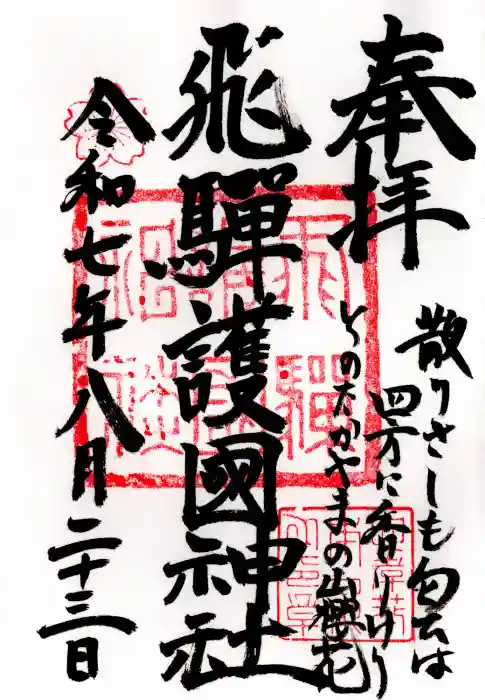 奉拝
散りさしも匂ふは
四方に香りけり
とのたかやまの山櫻花
飛驒護國神社
令和七年八月二十三日